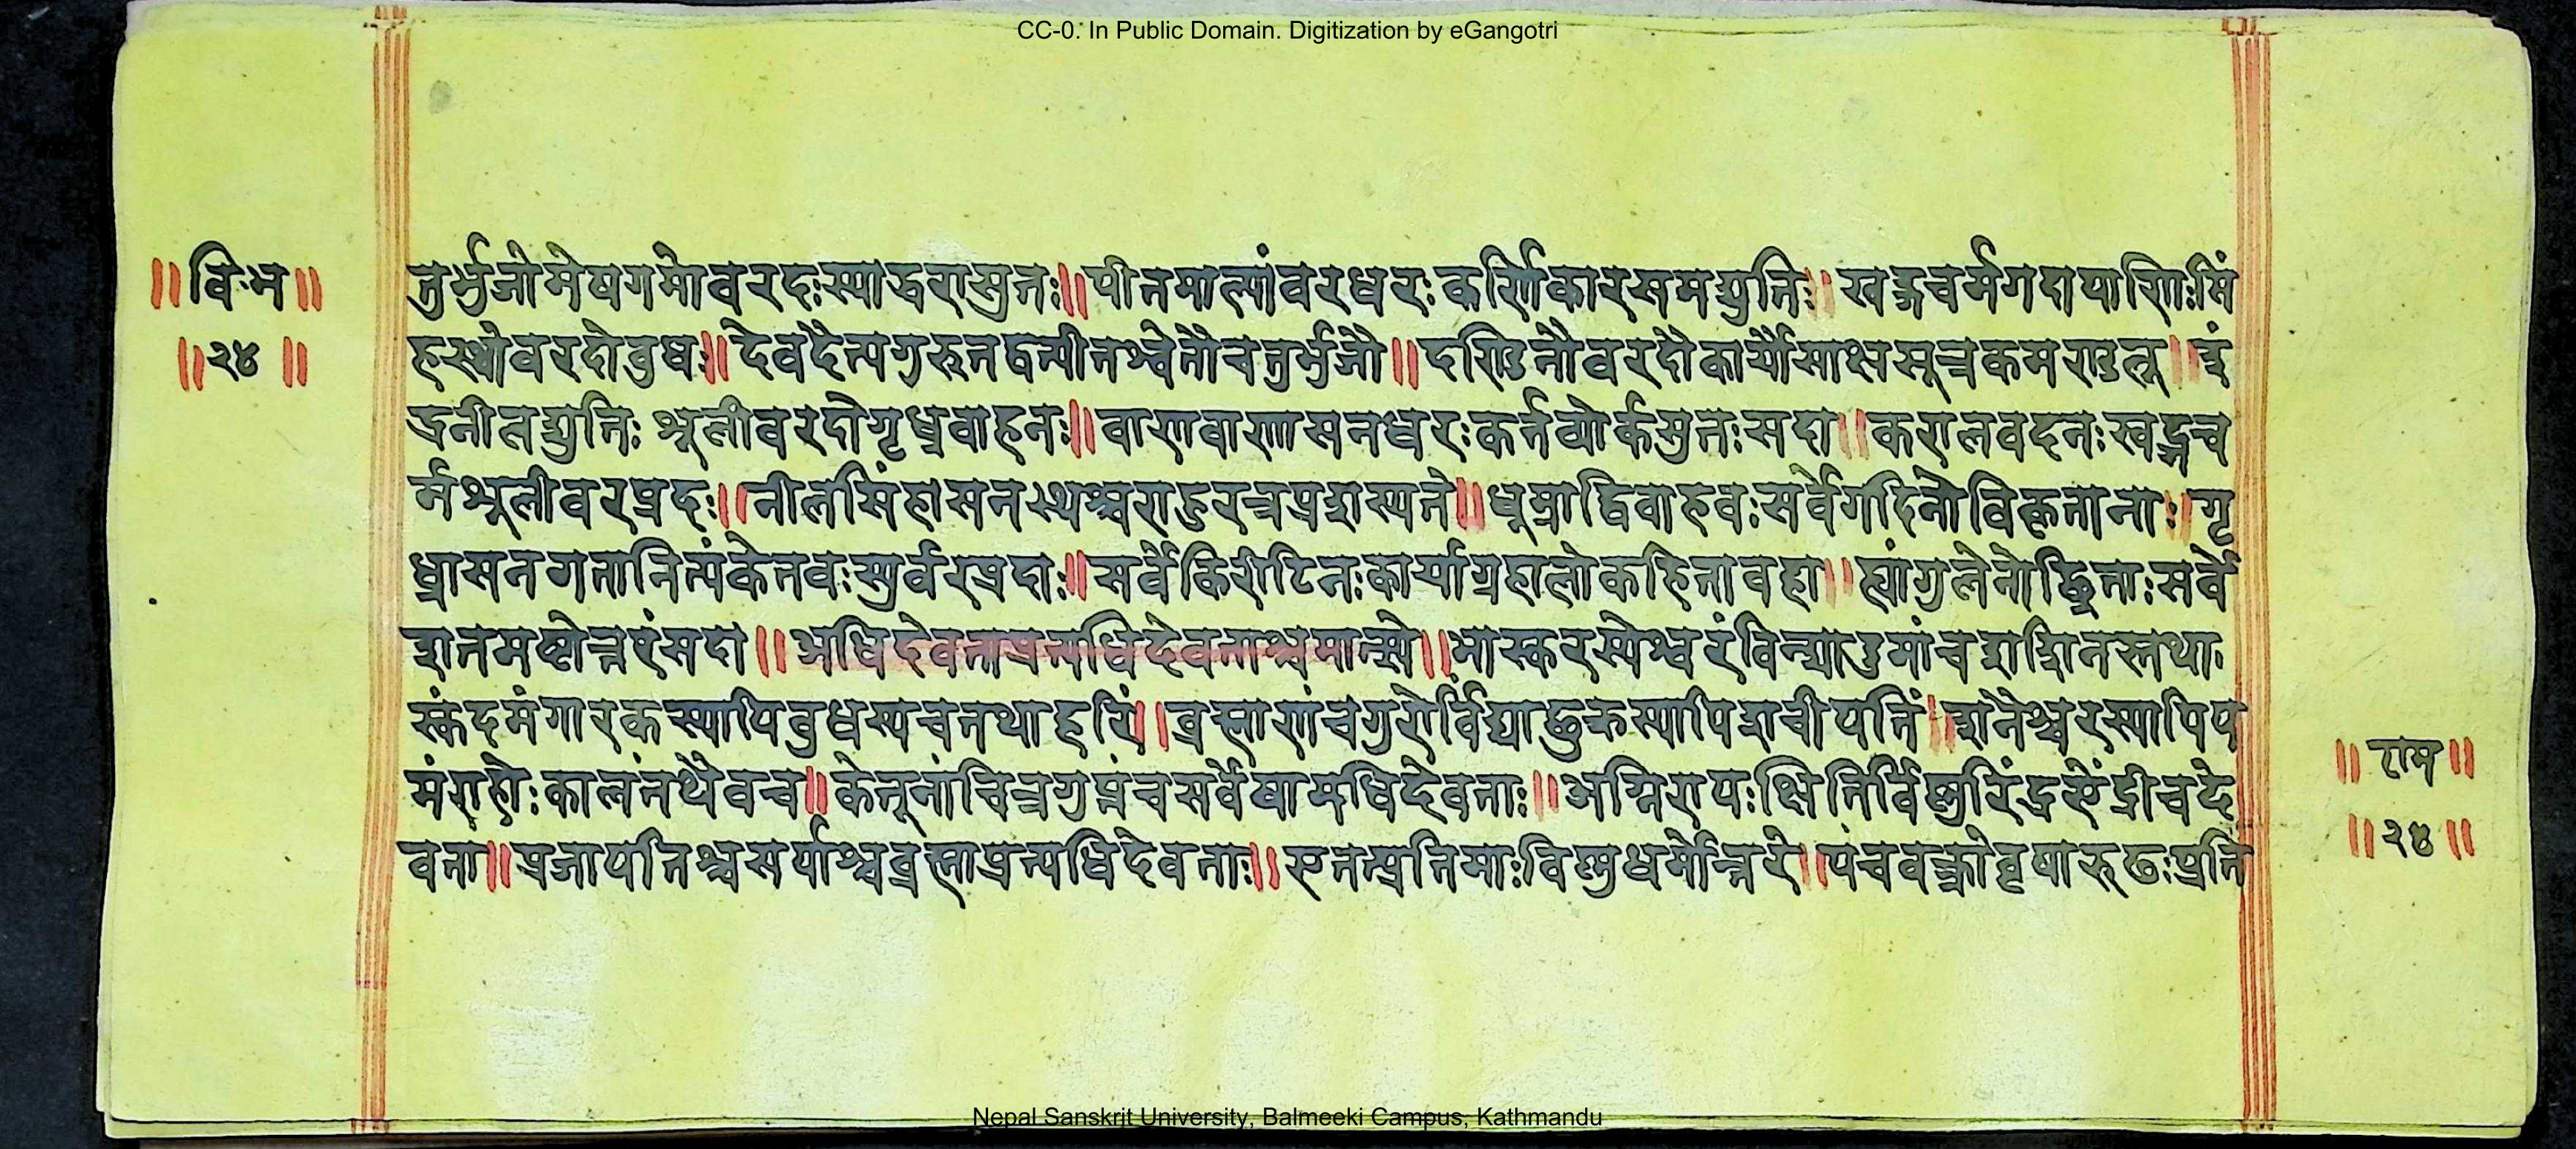 CC-0. In Public Domain. Digitization by eGangotri
॥ वि॰म ॥
॥ २४ ॥
तुर्भुजो मेषगमो वरदः स्याद्धरासुतः ॥ पीतमाल्यांवरधरः कर्णिकारसमद्युतिः ॥ खड्गचर्मगदापाणिः सिं
हस्थो वरदो वुधः ॥ देवदैत्यगुरू तद्वत्पीतश्वेतौ चतुर्भुजौ ॥ दण्डिनौ वरदौ कार्यौ साक्षसूत्रकमण्डलू ॥ इं
द्रनीलद्युतिः शूली वरदो गृध्रवाहनः ॥ वाणवाणासनधरः कर्तव्योर्कसुतः सदा ॥ करालवदनः खड्गच
र्मशूली वरप्रदः ॥ नीलसिंहासनस्थश्च राहुरत्र प्रशस्यते ॥ धूम्रा द्विवाहवः सर्वे गदिनो विकृताननाः ॥ गृ
ध्रासनगता नित्यं केतवः स्युर्वरप्रदाः ॥ सर्वे किरीटिनः कार्या ग्रहा लोकहितावहा ॥ ह्यांगुलेनोछ्रिताः सर्वे
शतमष्टोत्तरं सदा ॥ अधिदेवताप्रत्यधिदेवताश्च मात्स्ये ॥ भास्करस्येश्वरं विन्द्यादुमां च शशिनस्तथा
स्कंदमंगारकस्यापि वुधस्य च तथा हरिं ॥ व्रह्माणं च गुरोर्विद्याछुक्रस्यापि शचीपतिं ॥ शनेश्चरस्यापि य
मं राहोः कालं तथैव च ॥ केतूनां चित्रगुप्तं च सर्वेषामधिदेवताः ॥ अग्निरापः क्षितिर्विष्णुरिंद्र ऐंद्री च दे
वता ॥ प्रजापतिश्च सर्पाश्च व्रह्मा प्रत्यधिदेवताः ॥ एतत्प्रतिमाः विष्णुधर्मोत्तरे ॥ पंचवक्त्रो वृषारूढः प्रति
॥ राम ॥
॥ २४ ॥
Nepal Sanskrit University, Balmeeki Campus, Kathmandu